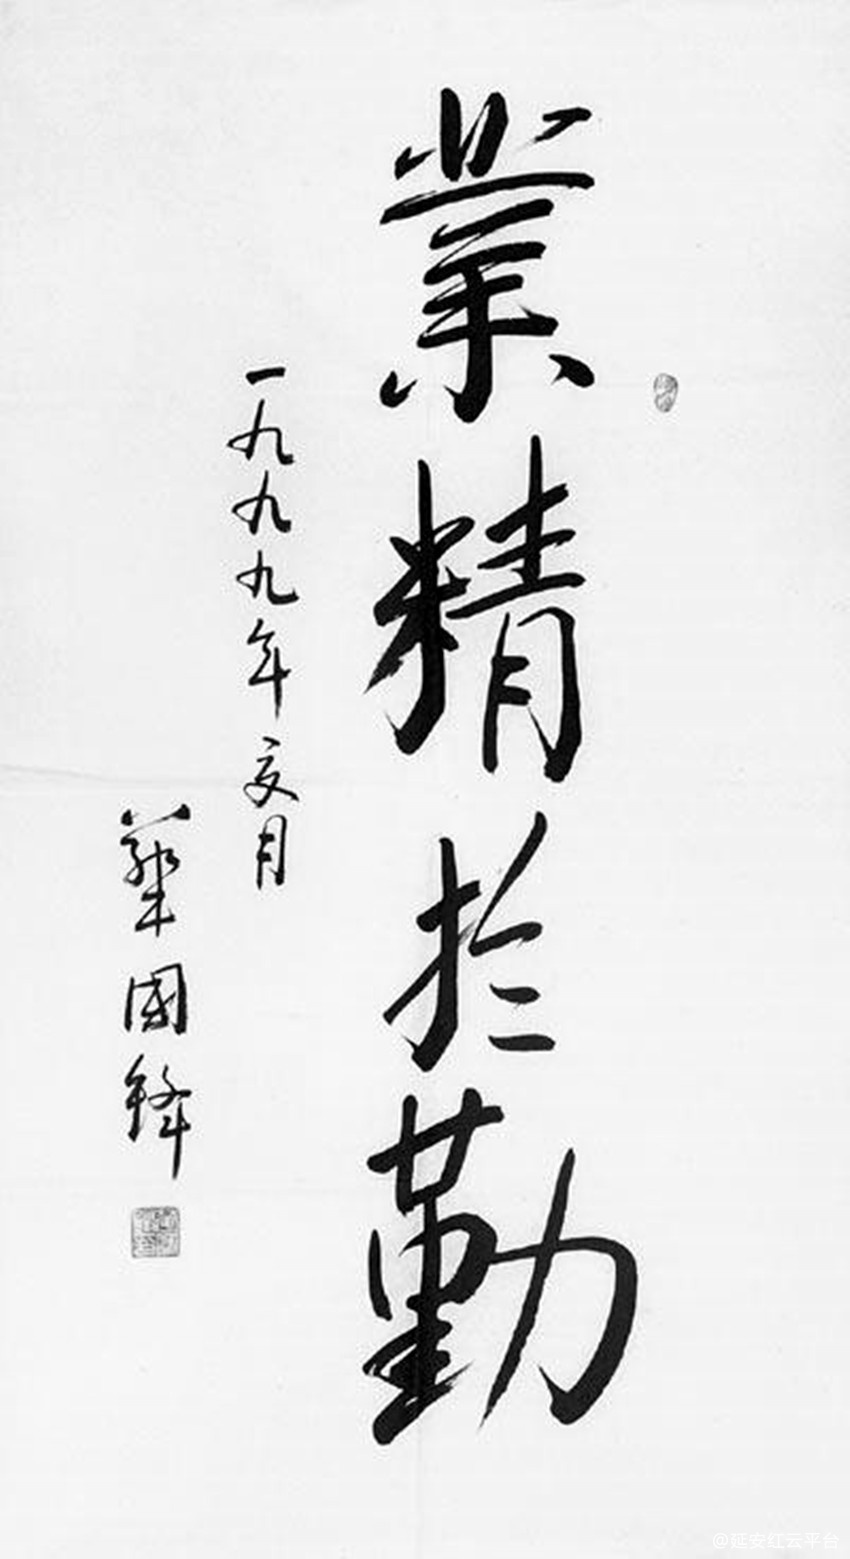 業精於勤
一九九九年六月
華國鋒
@延安红云平台